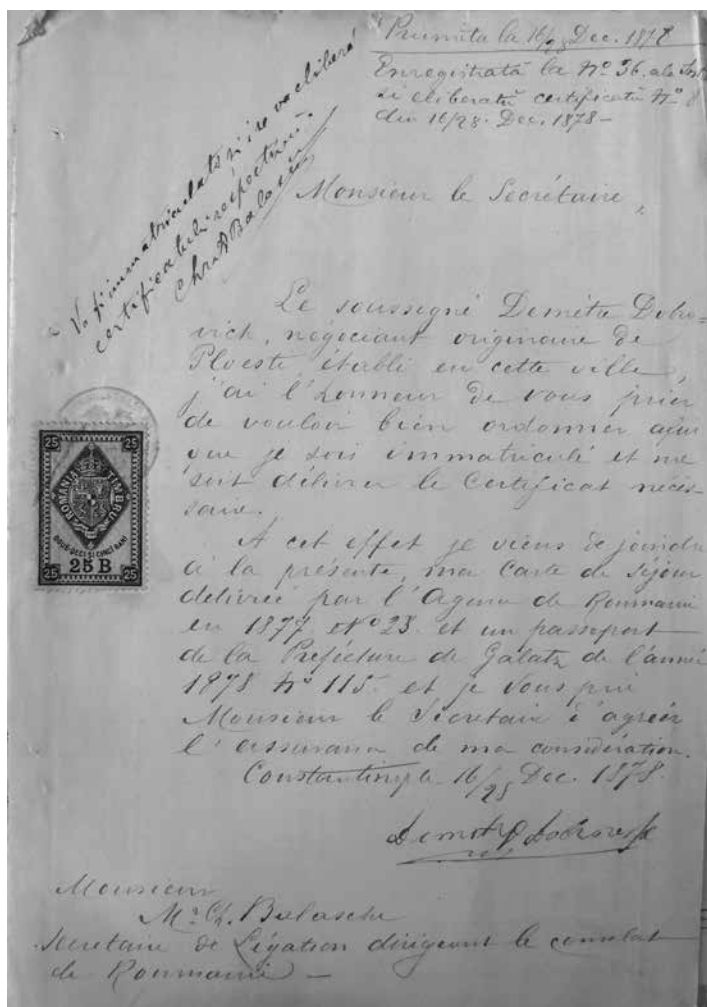 Primita la 16/28 Dec. 1878
Enregistrată la Nº 36. ale
si eliberatu certificatu Nº 8
din 16/28. Dec. 1878 –
Va fi immatriculatŭ si i se va elibera
certificatulŭ respectivŭ.
Monsieur le Secrétaire,
Le soussigné Demètre Dobro=
vich, négociant originaire de
Ploesti, établi en cette ville,
j'ai l'honneur de vous prier
de vouloir bien ordonner afin
que je sois immatriculé et me
soit délivrer le Certificat néces-
saire.
A cet effet je viens de joindre
à la présente, ma Carte de Séjour
délivrée par l'Agence de Roumanie
en 1877 Nº 23. et un passeport
de la Préfecture de Galatz de l'année
1878 Nº 115. et je Vous prie
Monsieur le Sécretaire d'agréer
l'assurance de ma considération.
Constantinople 16/28 Dec. 1878.
25 25
ROMANIA TIMBRU
DOUĚ-DECI ȘI CINCI BANI
25 B
25 25
Monsieur
Mr. Ch. Balasche
Secretaire de Légation dirigeant le consulat
de Roumanie –